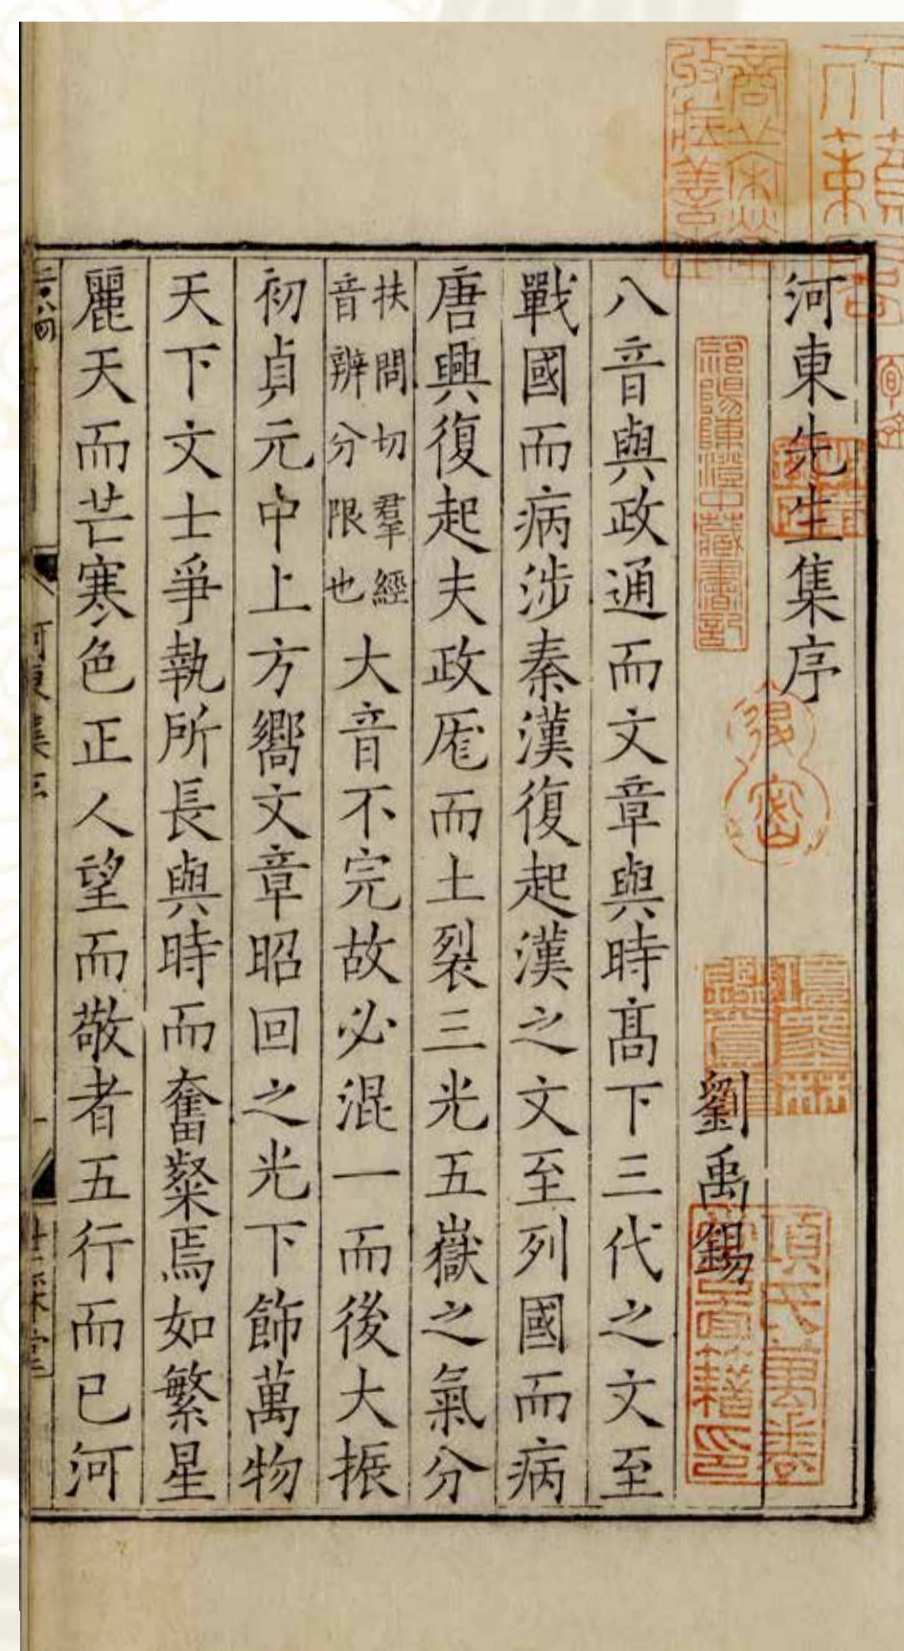 河東先生集序
劉禹錫
八音與政通而文章與時髙下三代之文至
戰國而病涉秦漢復起漢之文至列國而病
唐興復起夫政厖而土裂三光五嶽之氣分
扶問切羣經
音辨分限也
大音不完故必混一而後大振
初貞元中上方嚮文章昭回之光下飾萬物
天下文士爭執所長與時而奮粲焉如繁星
麗天而芒寒色正人望而敬者五行而已河
祁陽陳澄中藏書記
項氏萬卷